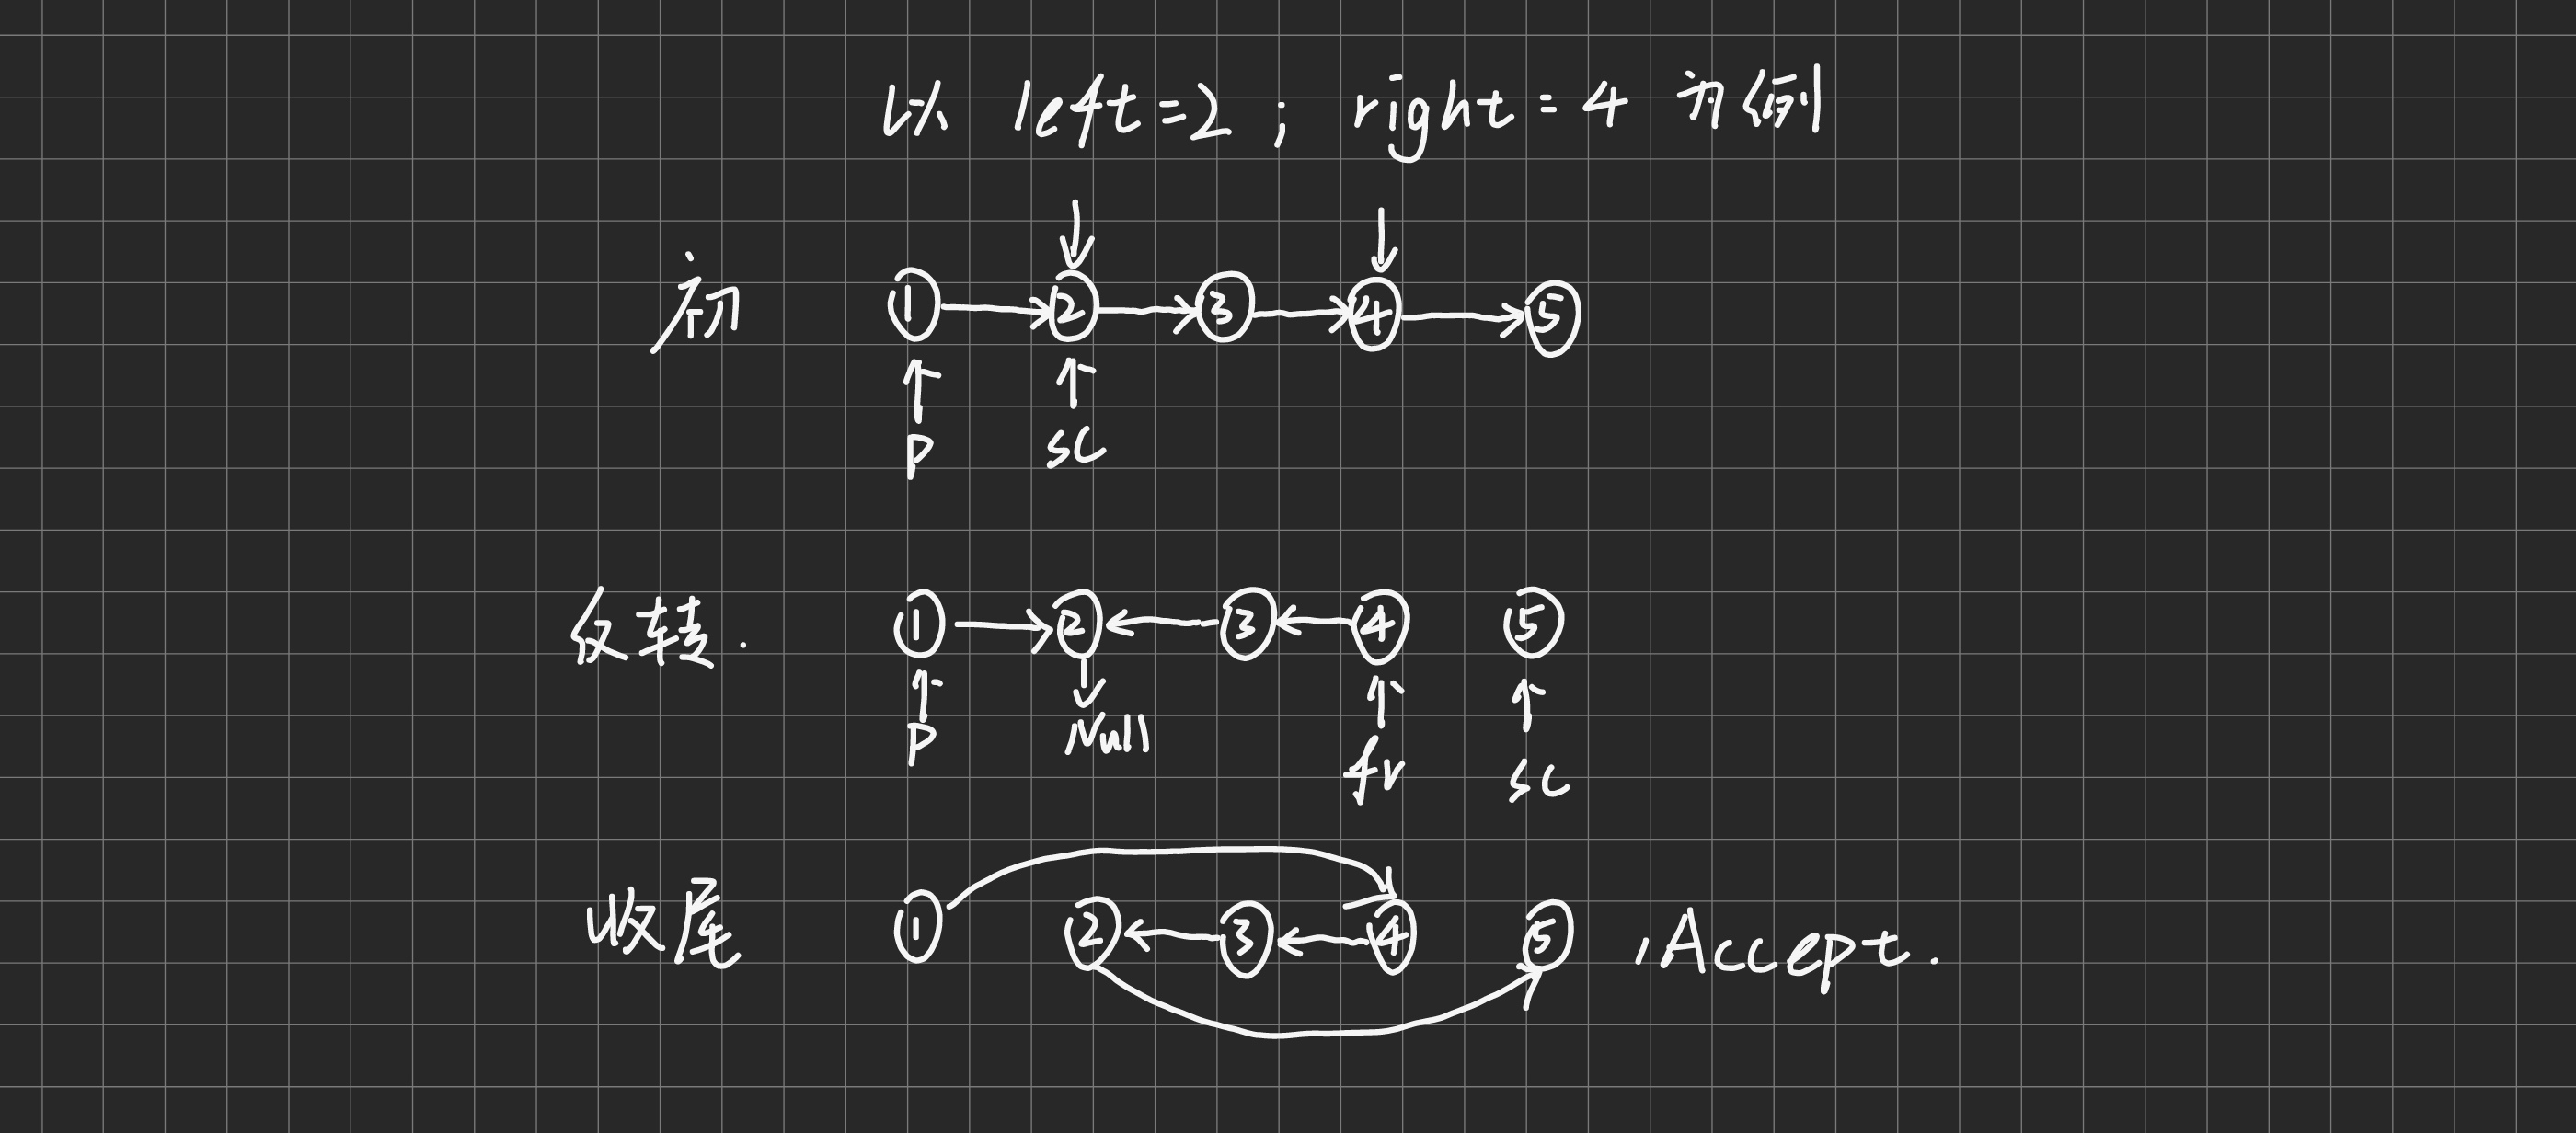 以 left=2 ; right=4 为例
初 1 2 3 4 5
p sc
反转. 1 2 3 4 5
p Null fr sc
收尾 1 2 3 4 5 , Accept.